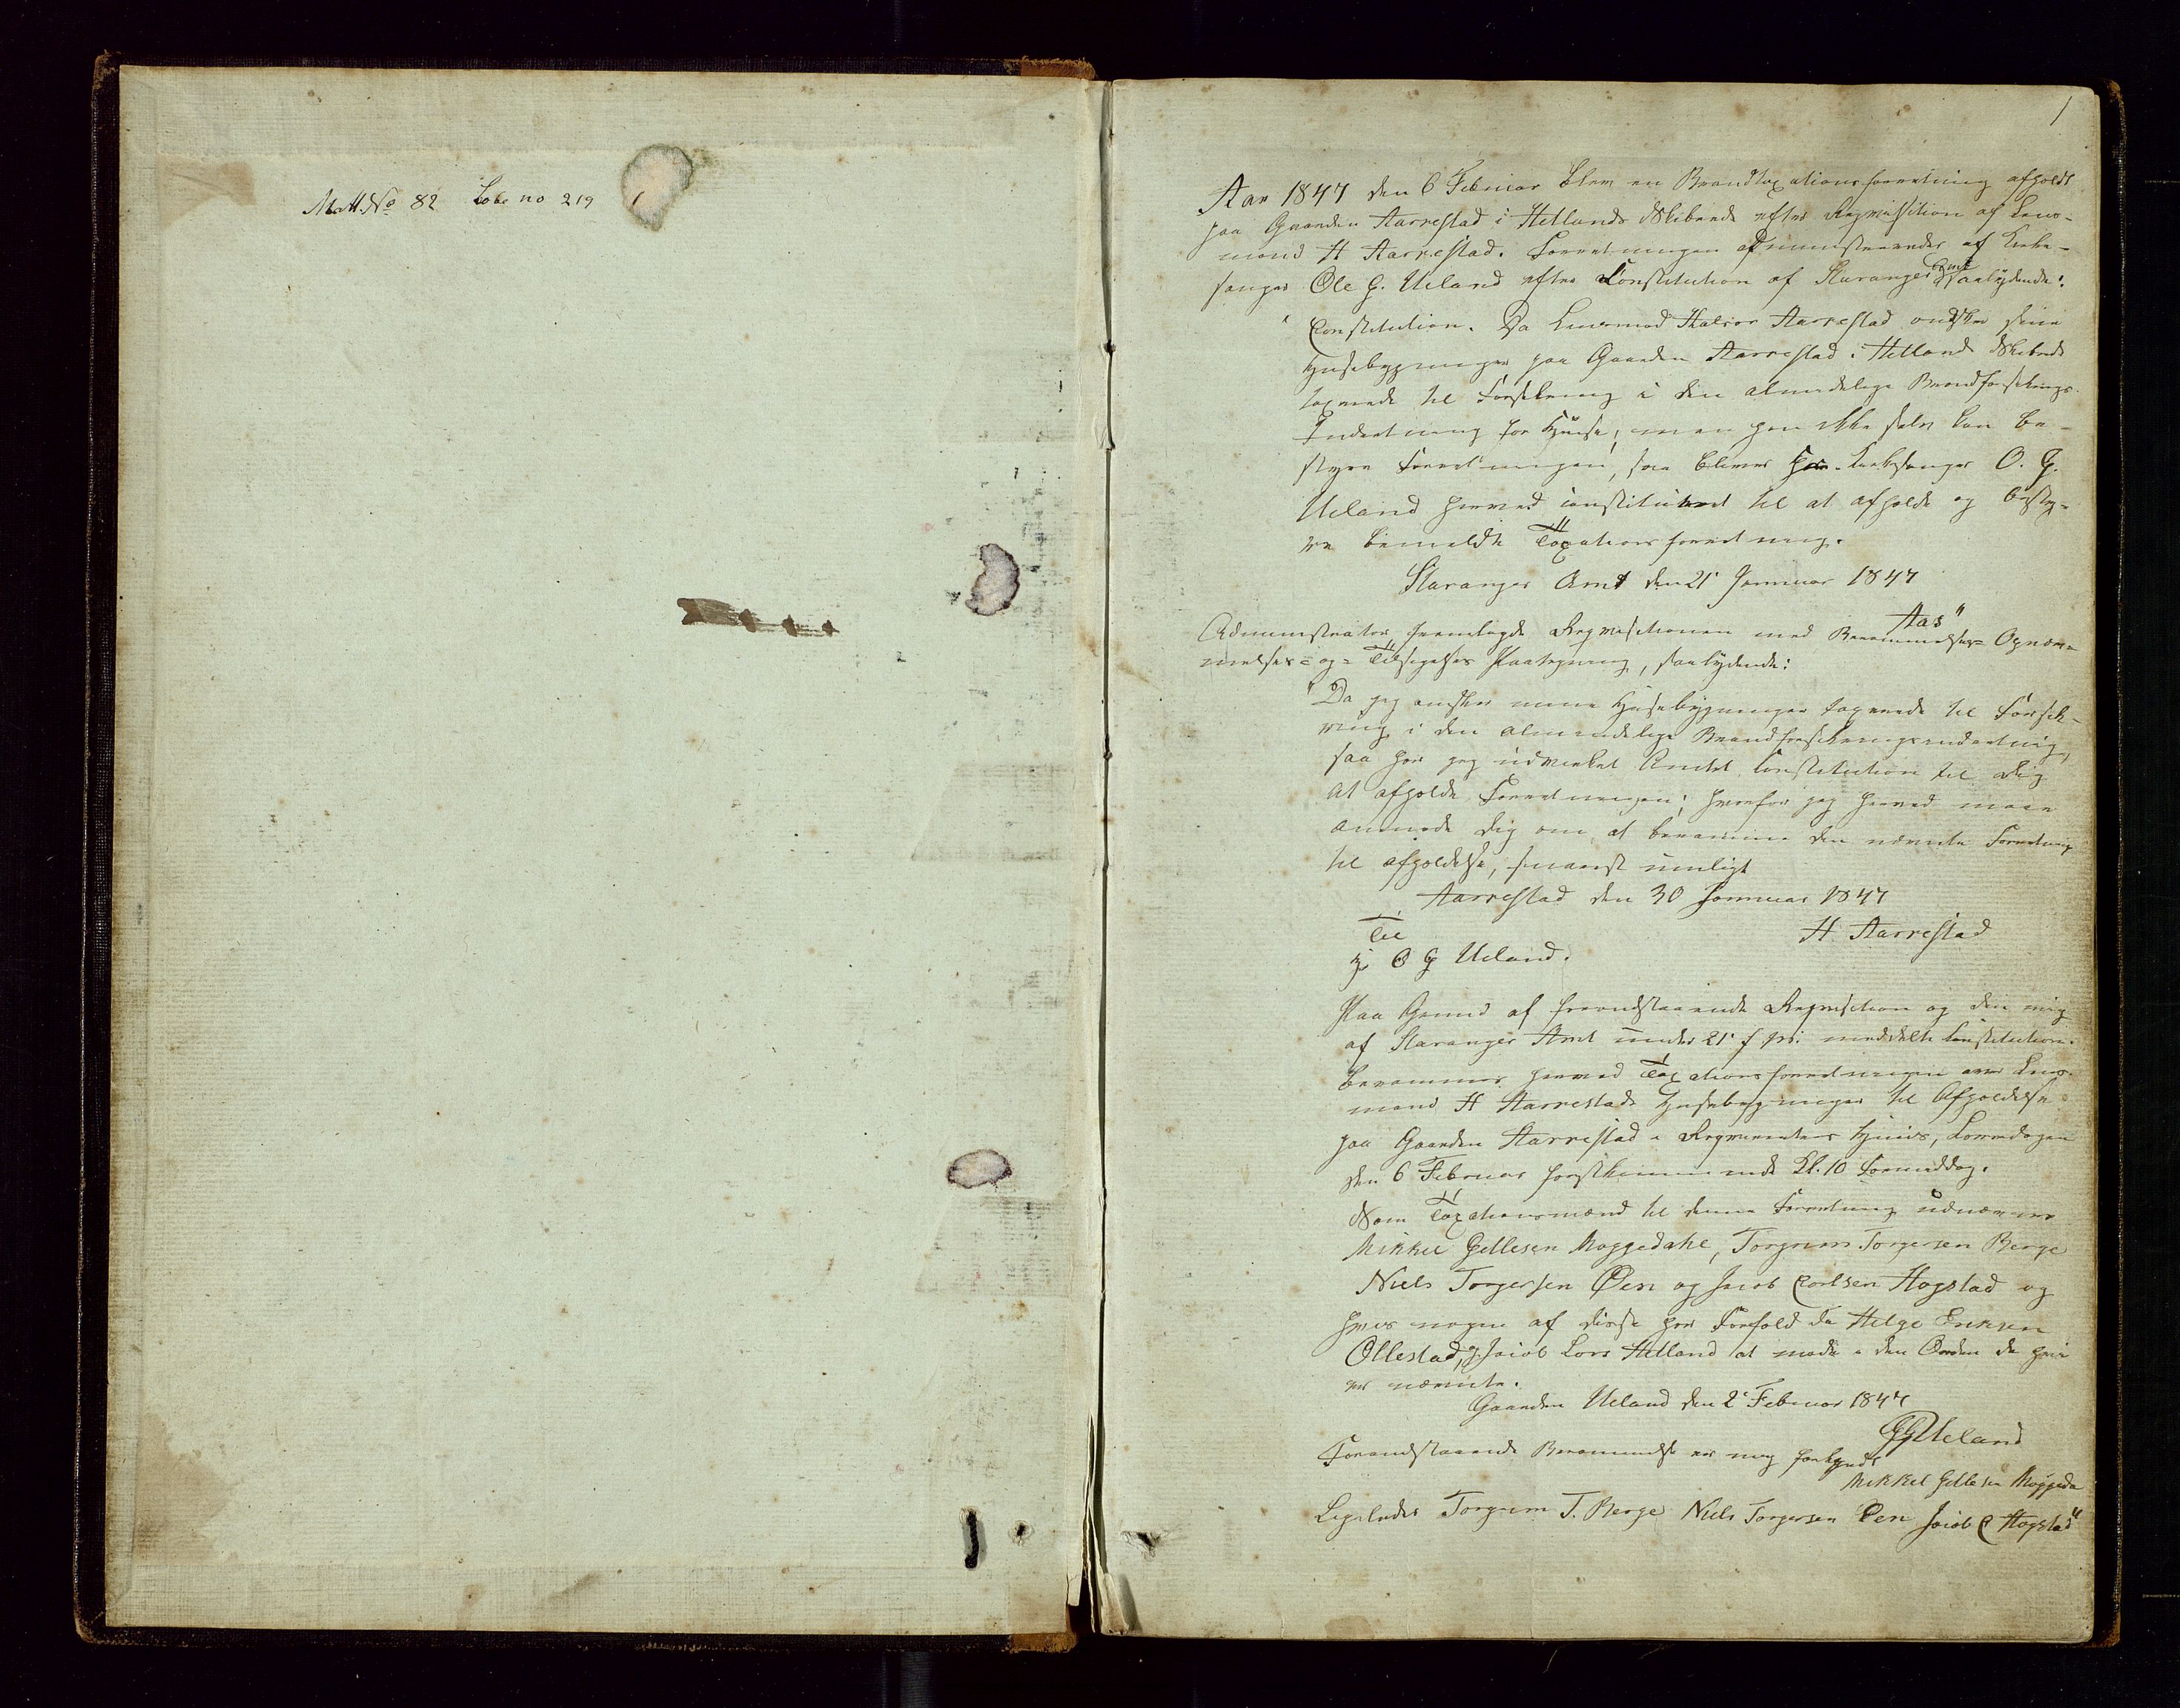 Matt. No 82 Lobe no 219
1
Aar 1847 den 6 Februar blev en Brandtaxationsforretning afholdt
paa Gaarden Aarrestad i Hetlands Skibrede efter Reqvisition af Lens-
mand H Aarrestad. Forretningen administreredes af Kirke-
sanger Ole G. Ueland efter Constitution af Stavanger Amt saalydende:
"Constitution. Da Lensmand Halvor Aarrestad ønsker sine
Huusebygninger paa Gaarden Aarrestad i Hetland Skibrede
taxerede til Forsikring i den almindelige Brandforsikrings-
Indretning for Huuse, men han ikke selv kan be-
styre Forretningen, saa bliver Hr. Kirkesanger O. G.
Ueland herved constitueret til at afholde og besty-
re bemeldte Taxationsforretning.
Stavanger Amt den 21 Januar 1847
Aas"
Administrator fremlagde Reqvisitionen med Berammelses- Opnæv-
nelses- og Tilsigelses Paategning, saalydende:
"Da jeg ønsker mine Huusebygninger taxerede til Forsik-
ring i den almindelige Brandforsikringsindretning,
saa har jeg udvirket Amtets Constitution til Dig
at afholde Forretningen; hvorfor jeg herved maae
anmode Dig om at beramme den nævnte Forretning
til afholdelse, snarest muligt
Aarrestad den 30 Januar 1847
H. Aarrestad
Til
Hr O G Ueland.
Paa Grund af foranstaaende Reqvisition og den mig
af Stavanger Amt under 21 f. M. meddelte Constitution.
berammes herved Taxationsforretningen over Lens-
mand H Aarrestads Huusebygninger til Afholdelse
paa Gaarden Aarrestad i Reqvirentens Huus, Løverdagen
den 6 Februar førstkommende Kl. 10 Formiddag.
Som Taxationsmænd til denne Forretning udnævnes
Mikkel Gellesen Moggedahl, Torgrim Torgersen Berge
Niels Torgersen Øen og Jacob Carlsen Hogstad og
hvis nogen af disse har Forfald da Helge Eriksen
Ollestad, og Jacob Lars Hetland at møde i den Orden de her
er nævnte.
Gaarden Ueland den 2 Februar 1847
OGUeland
Foranstaaende Berammelse er mig forkyndt
Mikkel Gellesen Moggeda
Ligeledes Torgrim T. Berge Niels Torgersen Øen Jacob C Hogstad"